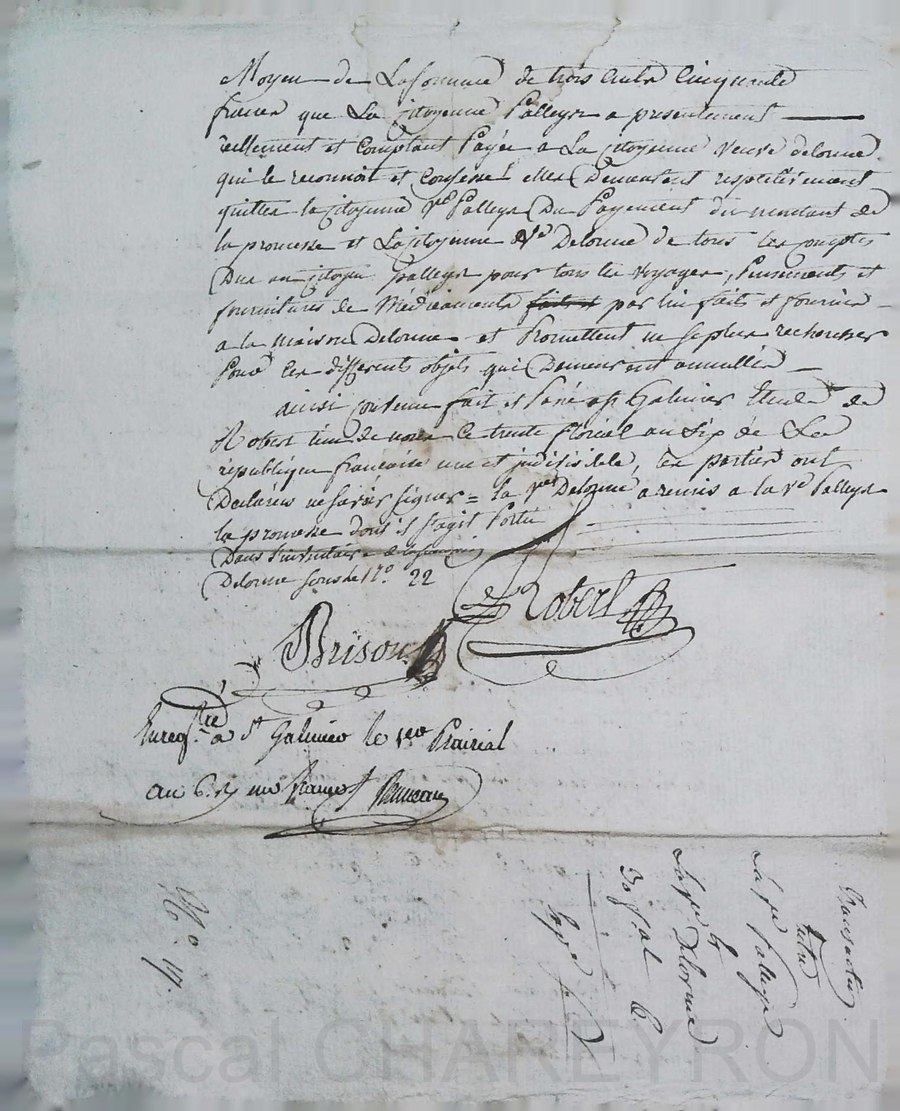 Moyen de La somme de trois cents cinquante
francs que La Citoyenne Palleyr a presentement
réellement et comptant Payée a La Citoyenne veuve delorme
qui le reconnoit et confesse elles Demeurent respectivement
quittes la Citoyenne Ve Palleyr Du Payement du montant de
la promesse et La Citoyenne Ve Delorme de tous les comptes
Due au citoyen palleyr pour tous les voyages, Pensements et
fournitures de Médicaments par lui faits et fournis
a la maison Delorme et Promettent ne se plus rechercher
Pour les differents objets qui Demeurent annullés
ainsi convenu fait et Passé a St Galmier Etude de
Robert l'un de nous Ce trente floreal an Six de La
republique francoise une et indivisible, les parties ont
Declarées ne savoir signer = la Ve Delorme a remis a la Ve Palleyr
la promesse dont s'agit Portée
Dans l'inventaire de
Delorme sous le No 22
Robert
Brison
Enregtré a St Galmier le 1er Prairial
an 6
Transaction
entre
La Ve Palleyr
et
La Ve Delorme
30 fal 6
No 4
Pascal CHAREYRON